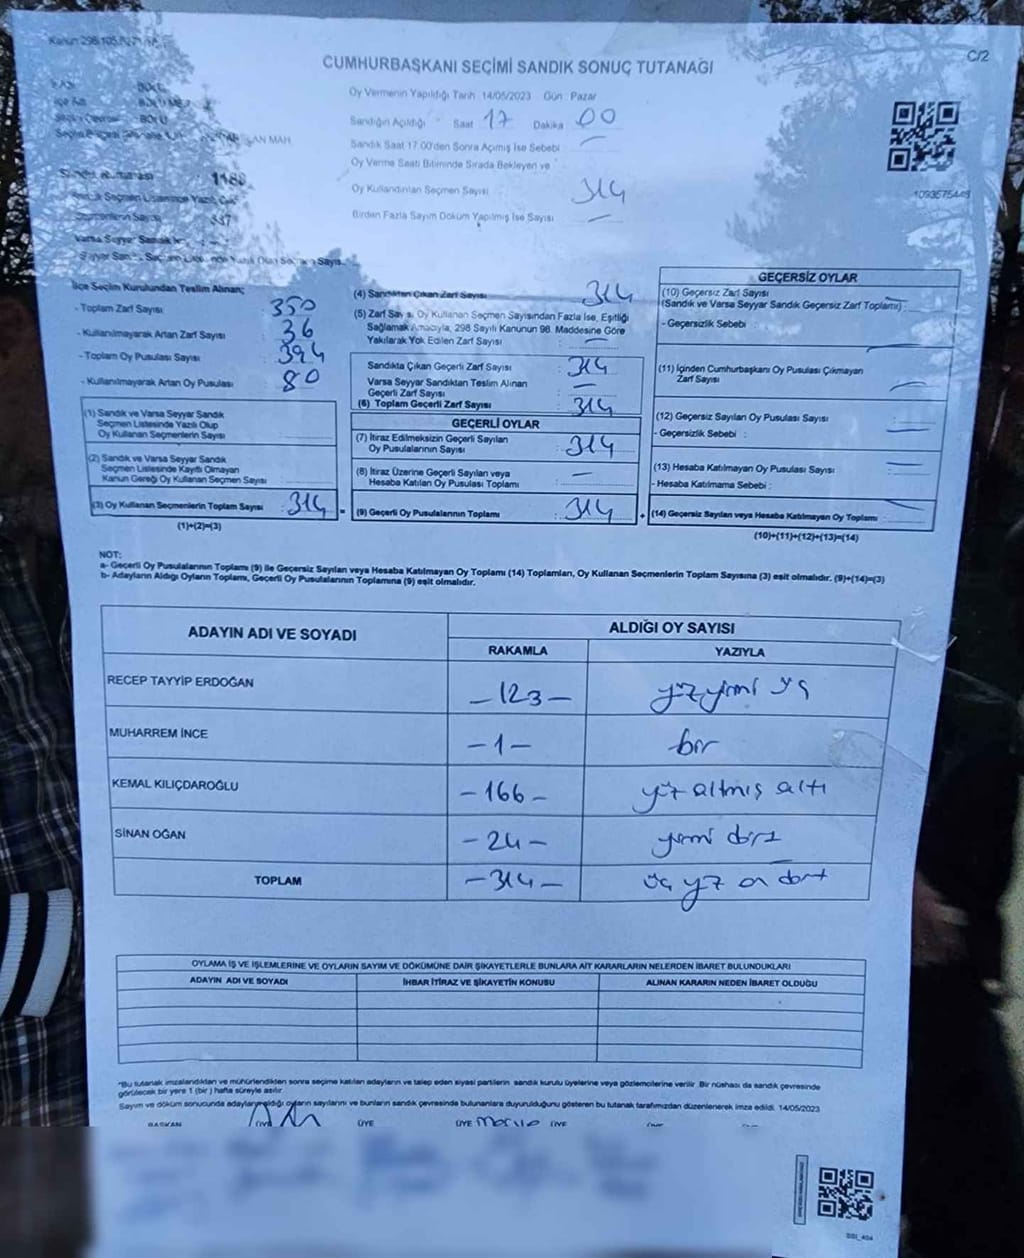 C/2
CUMHURBAŞKANI SEÇİMİ SANDIK SONUÇ TUTANAĞI
Oy Vermenin Yapıldığı Tarih 14/05/2023 Gün : Pazar
Sandığın Açıldığı Saat 17 Dakika 00
Sandık Saat 17.00'den Sonra Açımış İse Sebebi
Oy Verme Saati Bitiminde Sırada Bekleyen ve
Oy Kullandırılan Seçmen Sayısı 314
Birden Fazla Sayım Döküm Yapılmış İse Sayısı —
1188
Seçmenlerin Sayısı
İlçe Seçim Kurulundan Teslim Alınan;
- Toplam Zarf Sayısı 350
- Kullanılmayarak Artan Zarf Sayısı 36
- Toplam Oy Pusulası Sayısı 394
- Kullanılmayarak Artan Oy Pusulası 80
(1) Sandık ve Varsa Seyyar Sandık
Seçmen Listesinde Yazılı Olup
Oy Kullanan Seçmenlerin Sayısı :
(2) Sandık ve Varsa Seyyar Sandık
Seçmen Listesinde Kayıtlı Olmayan
Kanun Gereği Oy Kullanan Seçmen Sayısı :
(3) Oy Kullanan Seçmenlerin Toplam Sayısı : 314
(1)+(2)=(3)
(4) Sandıktan Çıkan Zarf Sayısı 314
(5) Zarf Sayısı, Oy Kullanan Seçmen Sayısından Fazla İse, Eşitliği
Sağlamak Amacıyla, 298 Sayılı Kanunun 98. Maddesine Göre
Yakılarak Yok Edilen Zarf Sayısı : —
Sandıkta Çıkan Geçerli Zarf Sayısı : 314
Varsa Seyyar Sandıktan Teslim Alınan
Geçerli Zarf Sayısı : —
(6) Toplam Geçerli Zarf Sayısı : 314
GEÇERLİ OYLAR
(7) İtiraz Edilmeksizin Geçerli Sayılan
Oy Pusulalarının Sayısı : 314
(8) İtiraz Üzerine Geçerli Sayılan veya
Hesaba Katılan Oy Pusulası Toplamı : —
= (9) Geçerli Oy Pusulalarının Toplamı : 314 +
GEÇERSİZ OYLAR
(10) Geçersiz Zarf Sayısı
(Sandık ve Varsa Seyyar Sandık Geçersiz Zarf Toplamı) :
- Geçersizlik Sebebi :
(11) İçinden Cumhurbaşkanı Oy Pusulası Çıkmayan
Zarf Sayısı
(12) Geçersiz Sayılan Oy Pusulası Sayısı :
- Geçersizlik Sebebi :
(13) Hesaba Katılmayan Oy Pusulası Sayısı :
- Hesaba Katılmama Sebebi :
(14) Geçersiz Sayılan veya Hesaba Katılmayan Oy Toplamı :
(10)+(11)+(12)+(13)=(14)
NOT:
a- Geçerli Oy Pusulalarının Toplamı (9) ile Geçersiz Sayılan veya Hesaba Katılmayan Oy Toplamı (14) Toplamları, Oy Kullanan Seçmenlerin Toplam Sayısına (3) eşit olmalıdır. (9)+(14)=(3)
b- Adayların Aldığı Oyların Toplamı, Geçerli Oy Pusulalarının Toplamına (9) eşit olmalıdır.
ADAYIN ADI VE SOYADI ALDIĞI OY SAYISI
RAKAMLA YAZIYLA
RECEP TAYYİP ERDOĞAN -123- yüz yirmi üç
MUHARREM İNCE -1- bir
KEMAL KILIÇDAROĞLU -166- yüz altmış altı
SİNAN OĞAN -24- yirmi dört
TOPLAM -314- üç yüz on dört
OYLAMA İŞ VE İŞLEMLERİNE VE OYLARIN SAYIM VE DÖKÜMÜNE DAİR ŞİKAYETLERLE BUNLARA AİT KARARLARIN NELERDEN İBARET BULUNDUKLARI
ADAYIN ADI VE SOYADI İHBAR İTİRAZ VE ŞİKAYETİN KONUSU ALINAN KARARIN NEDEN İBARET OLDUĞU
*Bu tutanak imzalandıktan ve mühürlendikten sonra seçime katılan adayların ve talep eden siyasi partilerin sandık kurulu üyelerine veya gözlemcilerine verilir. Bir nüshası da sandık çevresinde
görülecek bir yere 1 (bir) hafta süreyle asılır.
Sayım ve döküm sonucunda adayların aldığı oyların sayılarını ve bunların sandık çevresinde bulunanlara duyurulduğunu gösteren bu tutanak tarafımızdan düzenlenerek imza edildi. 14/05/2023
BAŞKAN ÜYE ÜYE ÜYE ÜYE